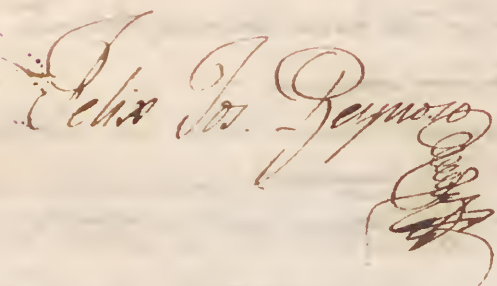 Felix Jos. Reynoso